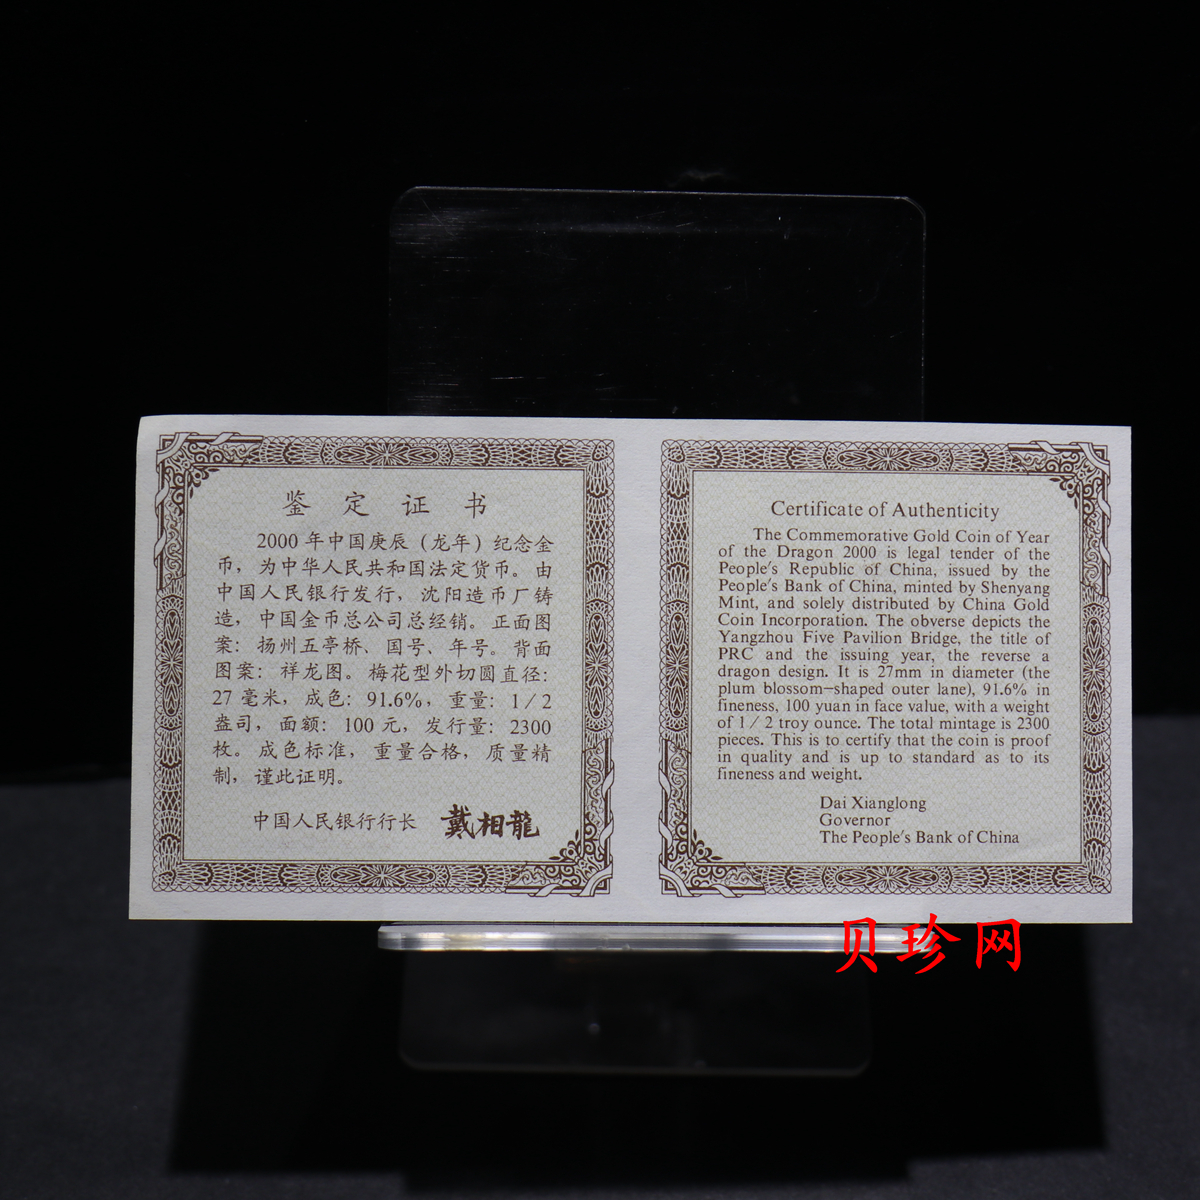 鉴定证书
2000年中国庚辰（龙年）纪念金
币，为中华人民共和国法定货币。由
中国人民银行发行，沈阳造币厂铸
造，中国金币总公司总经销。正面图
案：扬州五亭桥、国号、年号。背面
图案：祥龙图。梅花型外切圆直径：
27毫米，成色：91.6%，重量：1／2
盎司，面额：100元，发行量：2300
枚。成色标准，重量合格，质量精
制，谨此证明。
中国人民银行行长 戴相龍
Certificate of Authenticity
The Commemorative Gold Coin of Year
of the Dragon 2000 is legal tender of the
People's Republic of China, issued by the
People's Bank of China, minted by Shenyang
Mint, and solely distributed by China Gold
Coin Incorporation. The obverse depicts the
Yangzhou Five Pavilion Bridge, the title of
PRC and the issuing year, the reverse a
dragon design. It is 27mm in diameter (the
plum blossom-shaped outer lane), 91.6% in
fineness, 100 yuan in face value, with a weight
of 1／2 troy ounce. The total mintage is 2300
pieces. This is to certify that the coin is proof
in quality and is up to standard as to its
fineness and weight.
Dai Xianglong
Governor
The People's Bank of China
贝珍网